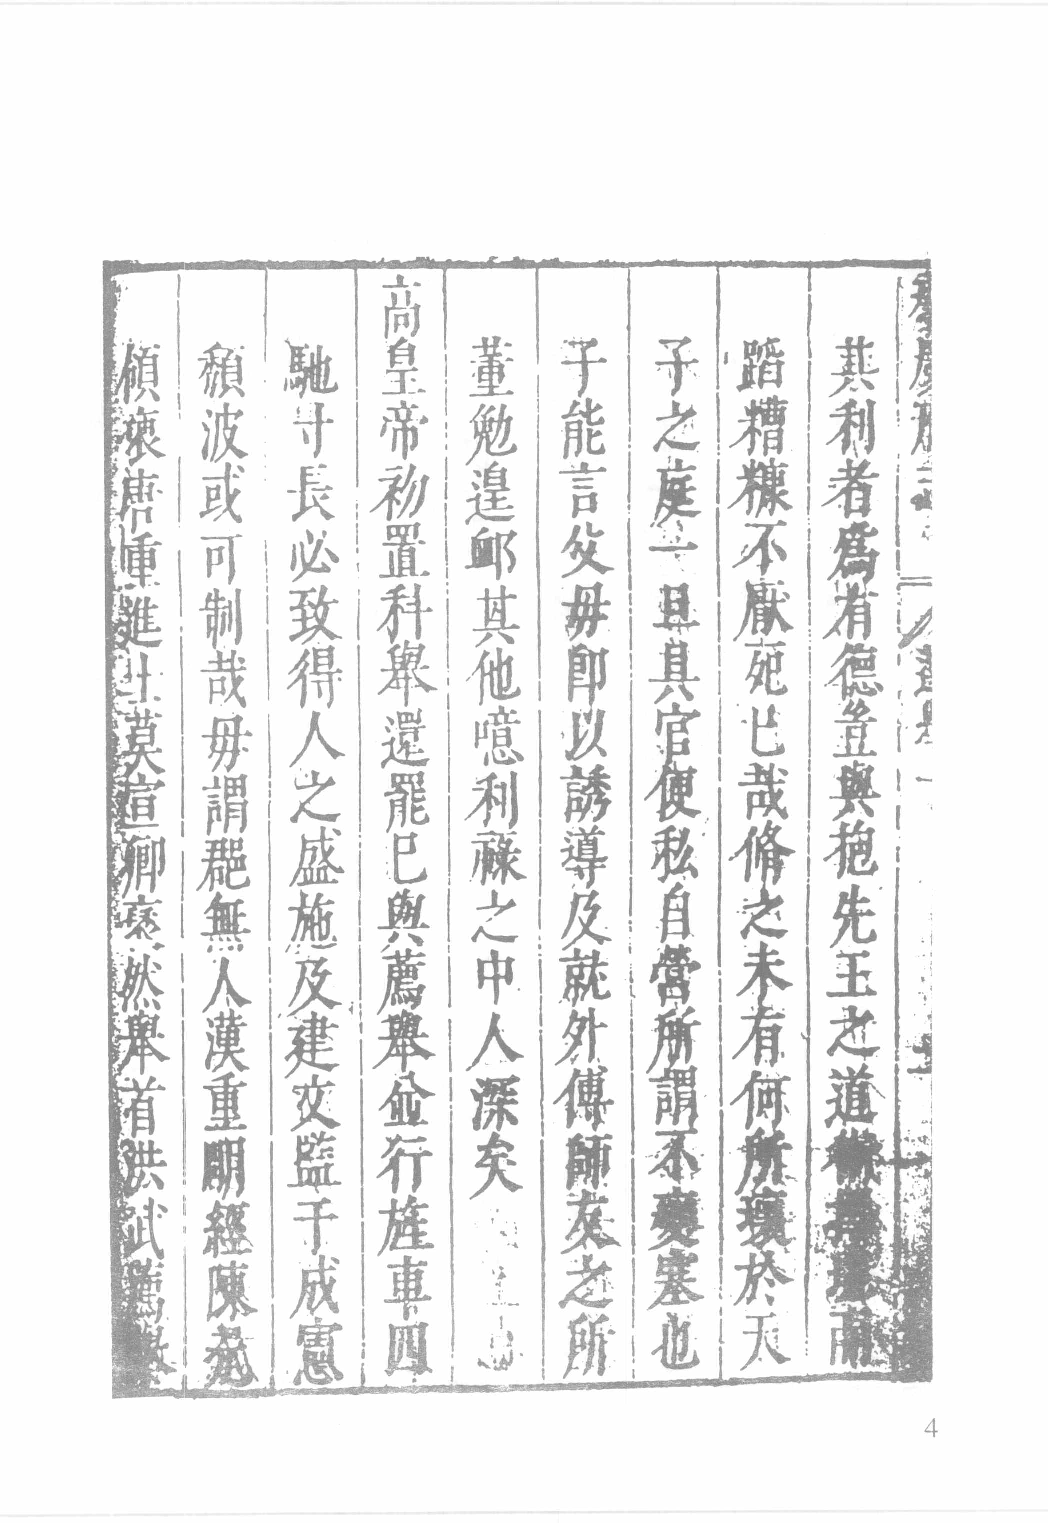 其利者爲有德豈與抱先王之道
蹈糟糠不厭死已哉脩之未有何所壞於天
子之庭一旦具官便私自營所謂不變塞也
子能言父毋卽以誘導及就外傅師友之所
董勉遑䘏其他噫利祿之中人深矣
高皇帝初置科舉還罷巳與薦舉並行旌車四
馳寸長必致得人之盛施及建文監于成憲
頹波或可制哉毋謂郡無人漢重明經陳堯
唐重進士莫宣卿然舉首洪武薦舉
4